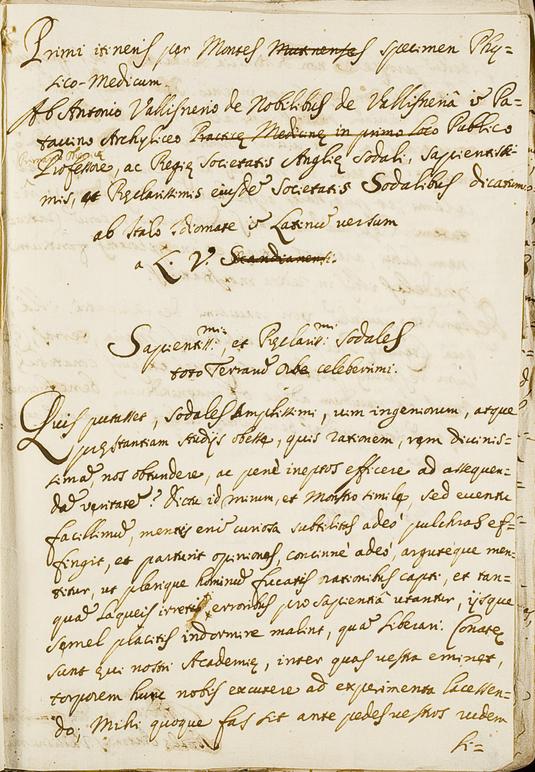 Primi itineris per Montes Mutinenses specimen Phy=
sico-Medicum
Ab Antonio Vallisnerio de Nobilibus de Vallisneriâ in Pa=
tavino Archylicęo Practicę Medicinę in primo Loco Publico
Professore, ac Regię Societatis Anglię Sodali, Sapientissi-
mis, et Pręclarissimis eiusdē Societatis Sodalibus dicatum
ab Italo Idiomate in Latinū versum
a L. V. Scandianensi.
Sapientiss:mi, et Pręclariss:mi Sodales
toto Terrarū Orbe celeberrimi.
Quis putasset, Sodales Amplissimi, vim ingeniorum, atque
pręstantiam studijs obesse, quis rationem, rem divinis=
simā, nos obtundere, ac penè ineptos efficere ad assequen=
dā veritatē? Dictu id mirum, et Monstro simile, sed eventu
facillimū, mentis enī curiosa subtilitas adeò pulchras ef=
fingit, et parturit opiniones, concinnè adeò, argutèque men=
titur, ut plerique hominū fucatis rationibus capti, et tan=
quā laqueis irretiti erroribus pro sapientiâ utantur, ijsque
semel placitis indormire malint, quā liberari. Conatę
sunt quidem nostrę Academię, inter quas vestra eminet,
torporem hunc nobis excutere ad experimenta lacessen=
do; Mihi quoque fas sit ante pedes vestros rudem
li=